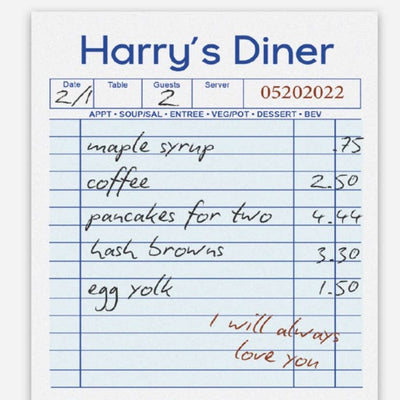 Harry's Diner
Date Table Guests Server
2/1 2 05202022
APPT • SOUP/SAL • ENTREE • VEG/POT • DESSERT • BEV
maple syrup .75
coffee 2.50
pancakes for two 4.44
hash browns 3.30
egg yolk 1.50
I will always
love you